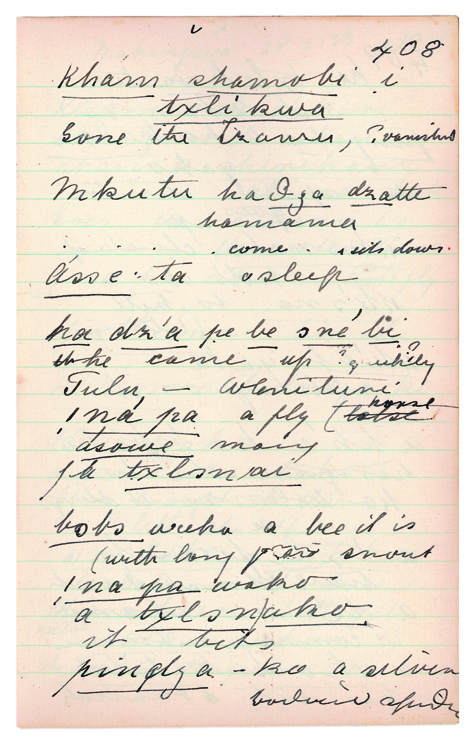 408
Khám shamobi i
txlikwa
Gone the Izamu, ? vanished
Mkutu ha dza dzatte
hamama
come sits down
ásse: ta asleep
ka dz'a pe be sné bi
he came up ? quickly ?
Tulu — Wanituni
'ná pa a fly (horse
asowe many
já txlsnai
bobs weka a bee it is
(with long snout
'na pa wako
a txlsn/ako
it bits
pindza - ko a silver
bodied spider